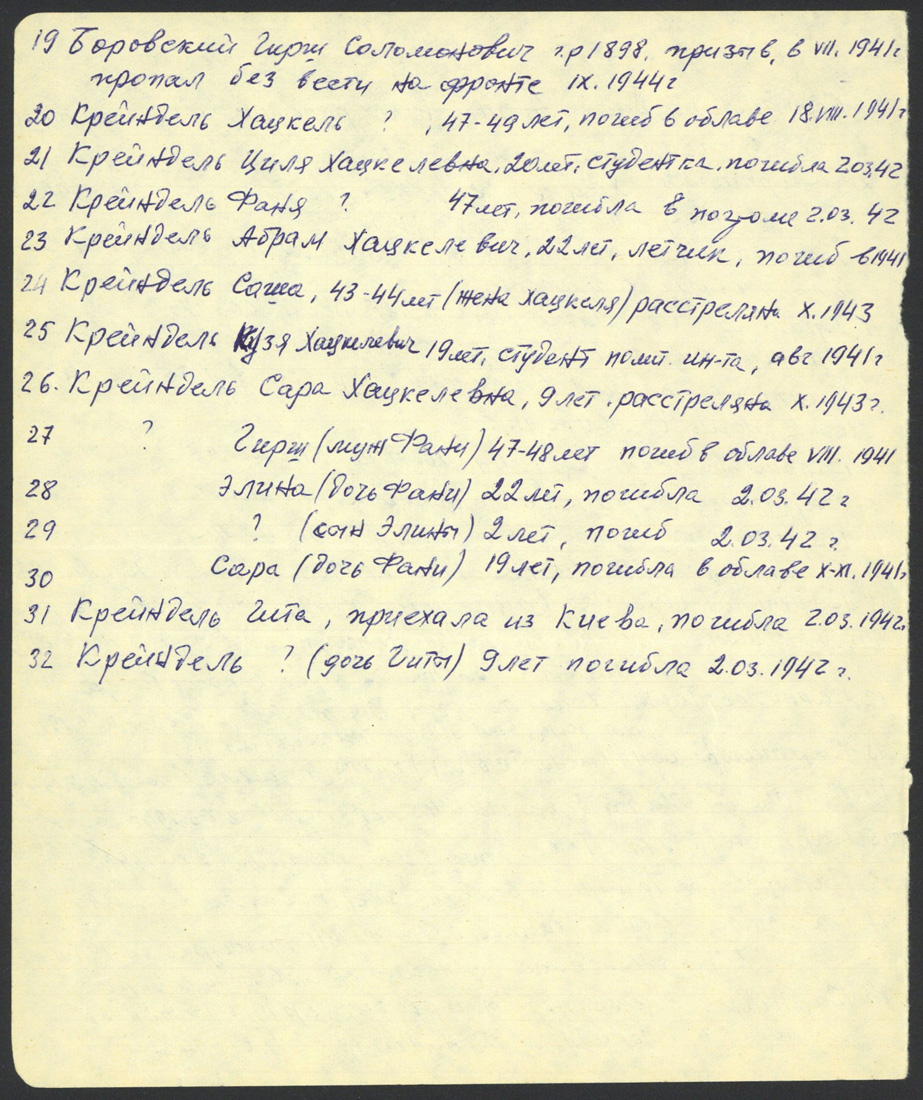 19 Боровский Гирш Соломонович г.р 1898, призв в, в VII. 1941г
пропал без вести на фронте IX. 1944г
20 Крейндель Хацкель ? , 47-49 лет, погиб в облаве 18.VIII.1941г
21 Крейндель Циля Хацкелевна, 20 лет, студентка, погибла 2.03.42
22 Крейндель Фаня ? 47 лет, погибла в погроме 2.03. 42
23 Крейндель Абрам Хацкелевич, 22 лет, летчик, погиб в 1941
24 Крейндель Саша, 43-44 лет (жена Хацкеля) расстреляна X.1943
25 Крейндель Кузя Хацкелевич 19 лет, студент полит. ин-та, авг 1941г
26. Крейндель Сара Хацкелевна, 9 лет, расстреляна X.1943г.
27 ? Гирш (муж Фани) 47-48 лет погиб в облаве VIII. 1941
28 Элина (дочь Фани) 22 лет, погибла 2.03.42г
29 ? (сын Элины) 2 лет, погиб 2.03.42 г.
30 Сара (дочь Фани) 19 лет, погибла в облаве X-XI. 1941г
31 Крейндель Гита, приехала из Киева, погибла 2.03.1942г.
32 Крейндель ? (дочь Гиты) 9 лет погибла 2.03.1942 г.